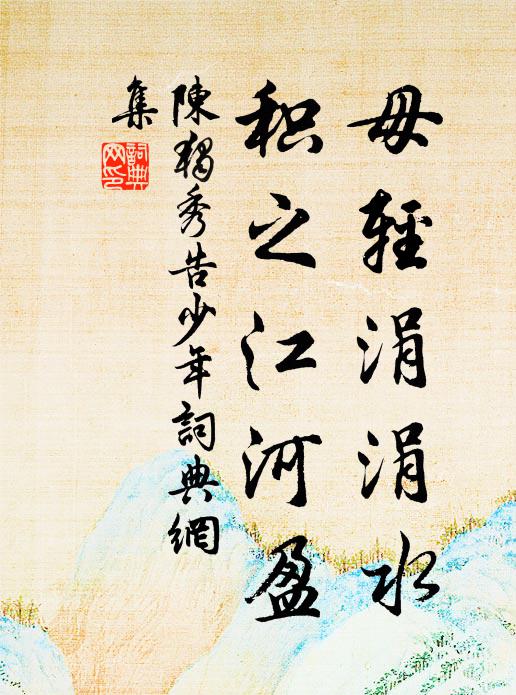 毋輕涓涓水
积之江河盈
陳獨秀告少年詞典網
集
詞典網印